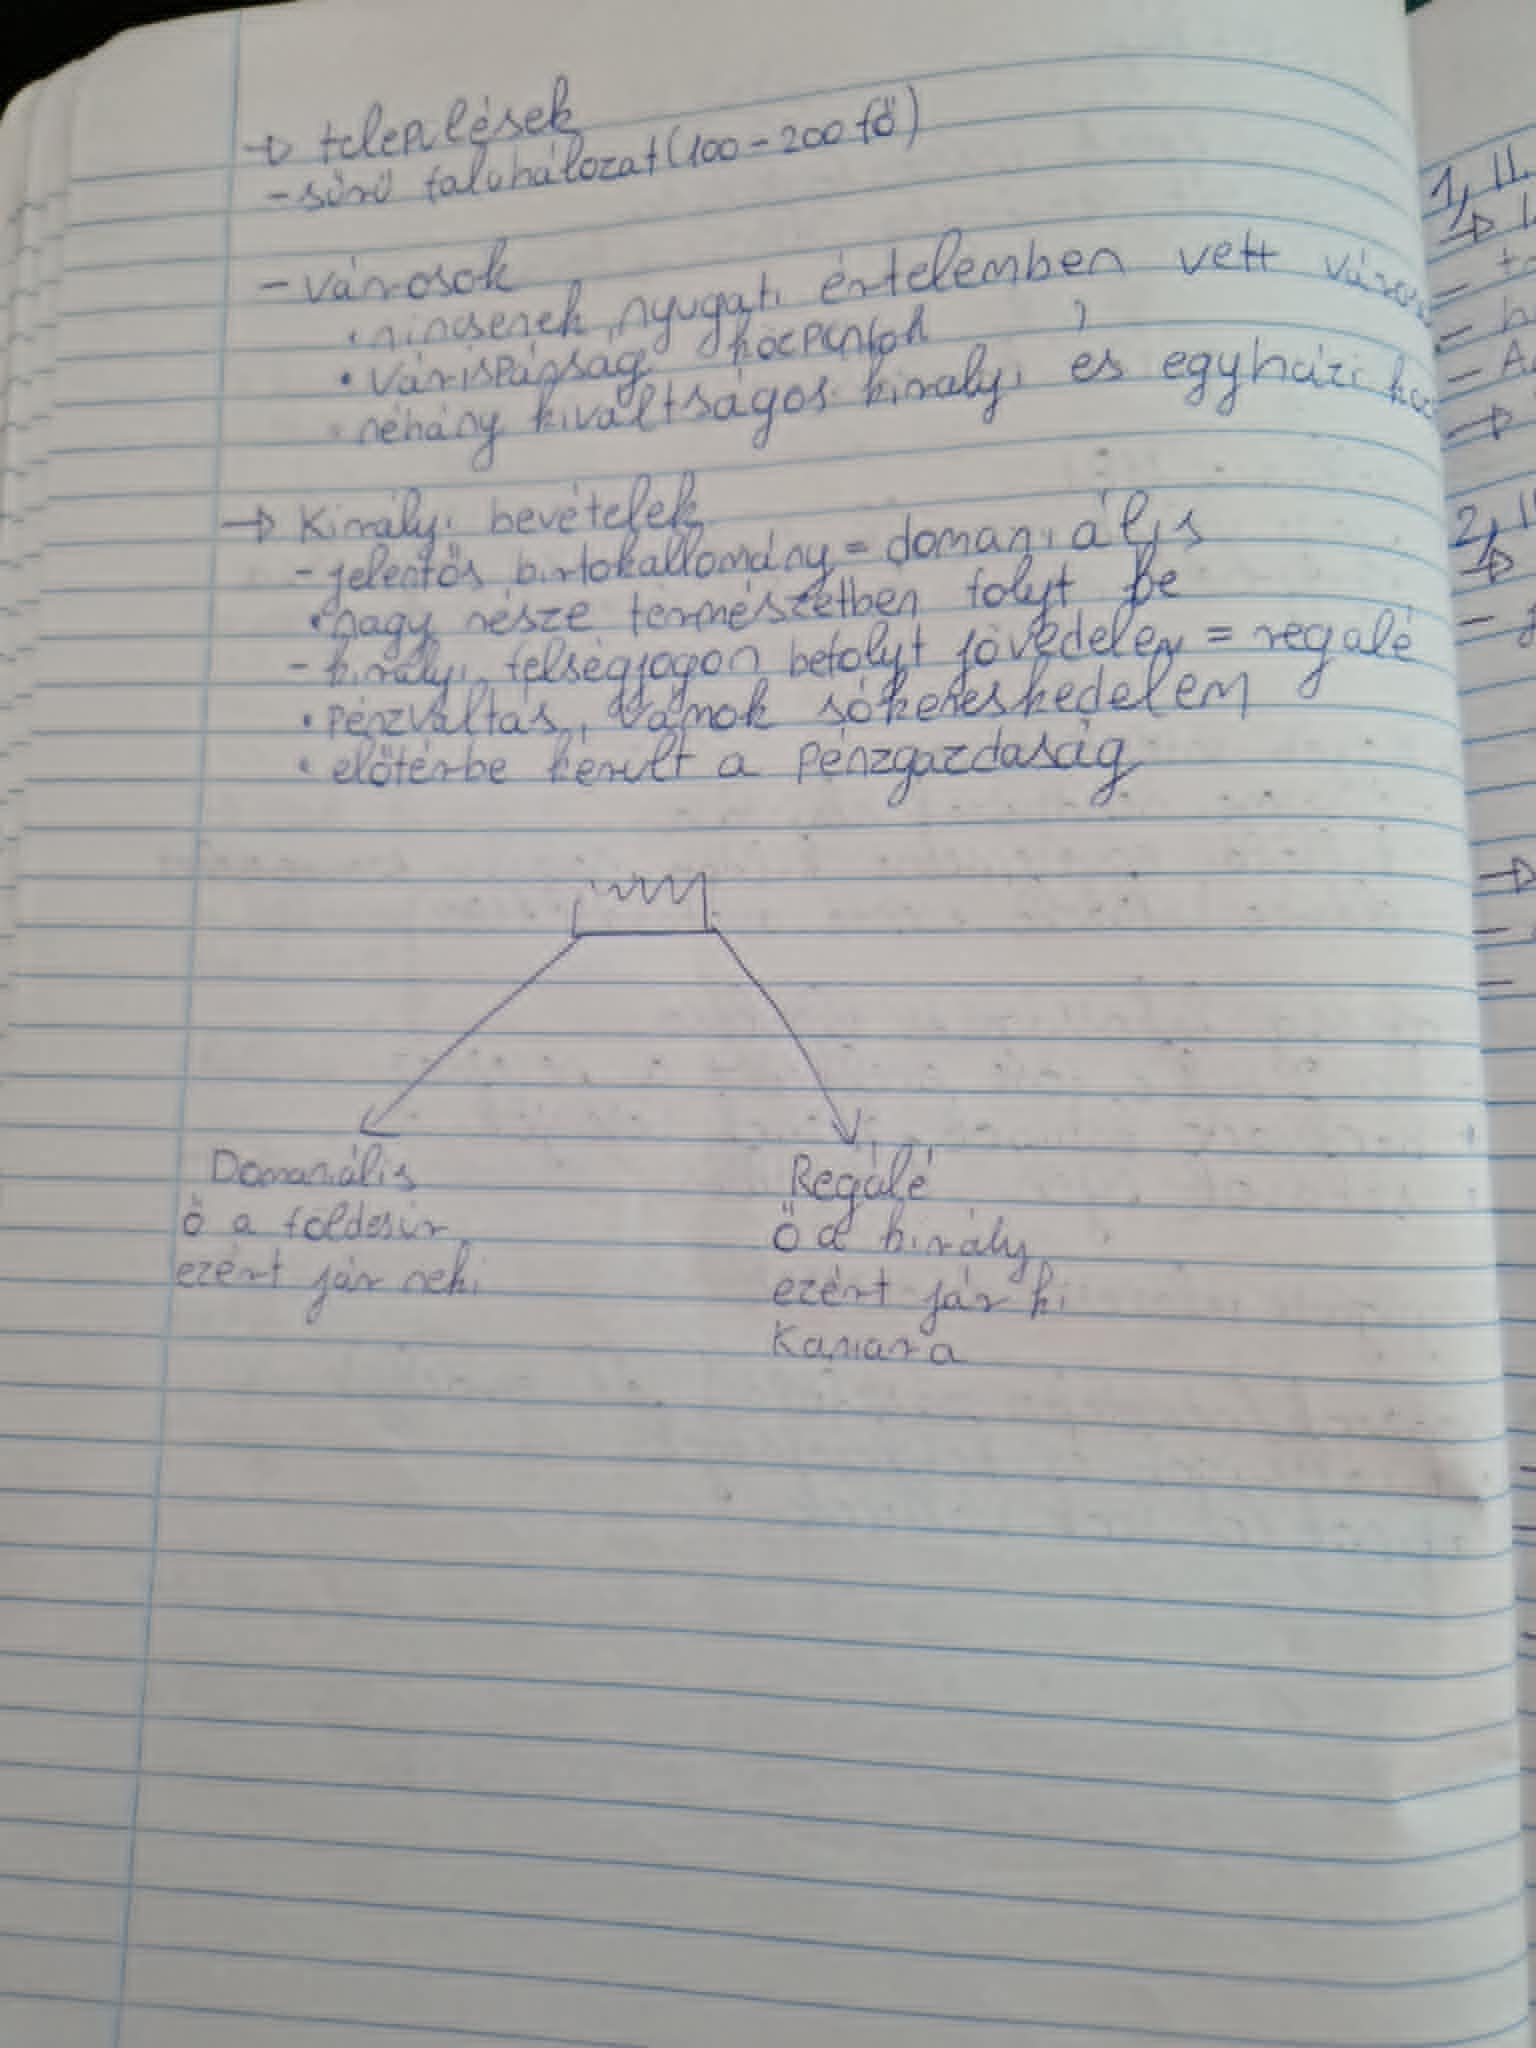 → települések
- sűrű faluhálozat (100-200 fő)
- városok
• nincsenek nyugati értelemben vett város
• várispánság központok
• néhány kiváltságos királyi és egyházi köz
→ Királyi bevételek
- jelentős birtokallomány = domaniális
• nagy része természetben folyt be
- királyi felségjogon befolyt jövedelem = regálé
• pénzváltás, vámok sókereskedelem
• előtérbe került a pénzgazdaság
Domaniális
ő a földesúr
ezért jár neki
Regálé
Ő a király
ezért jár ki
Kamara
1, II.
2, I